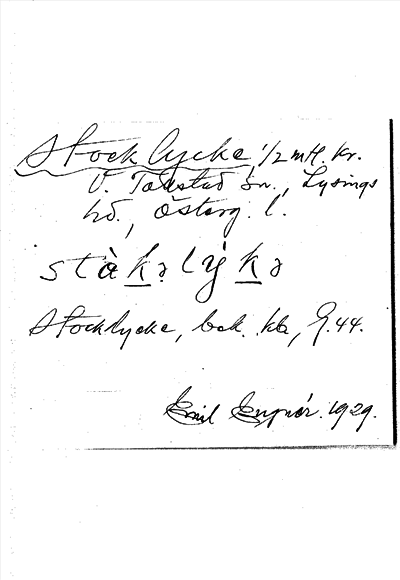 Stocklycke 1/2 mtl. kr.
V. Tollstad sn., Lysings
hd., Österg. l.
stàkəlýkə
Stocklycke, bok. kb, G. 44.
Emil 1929.